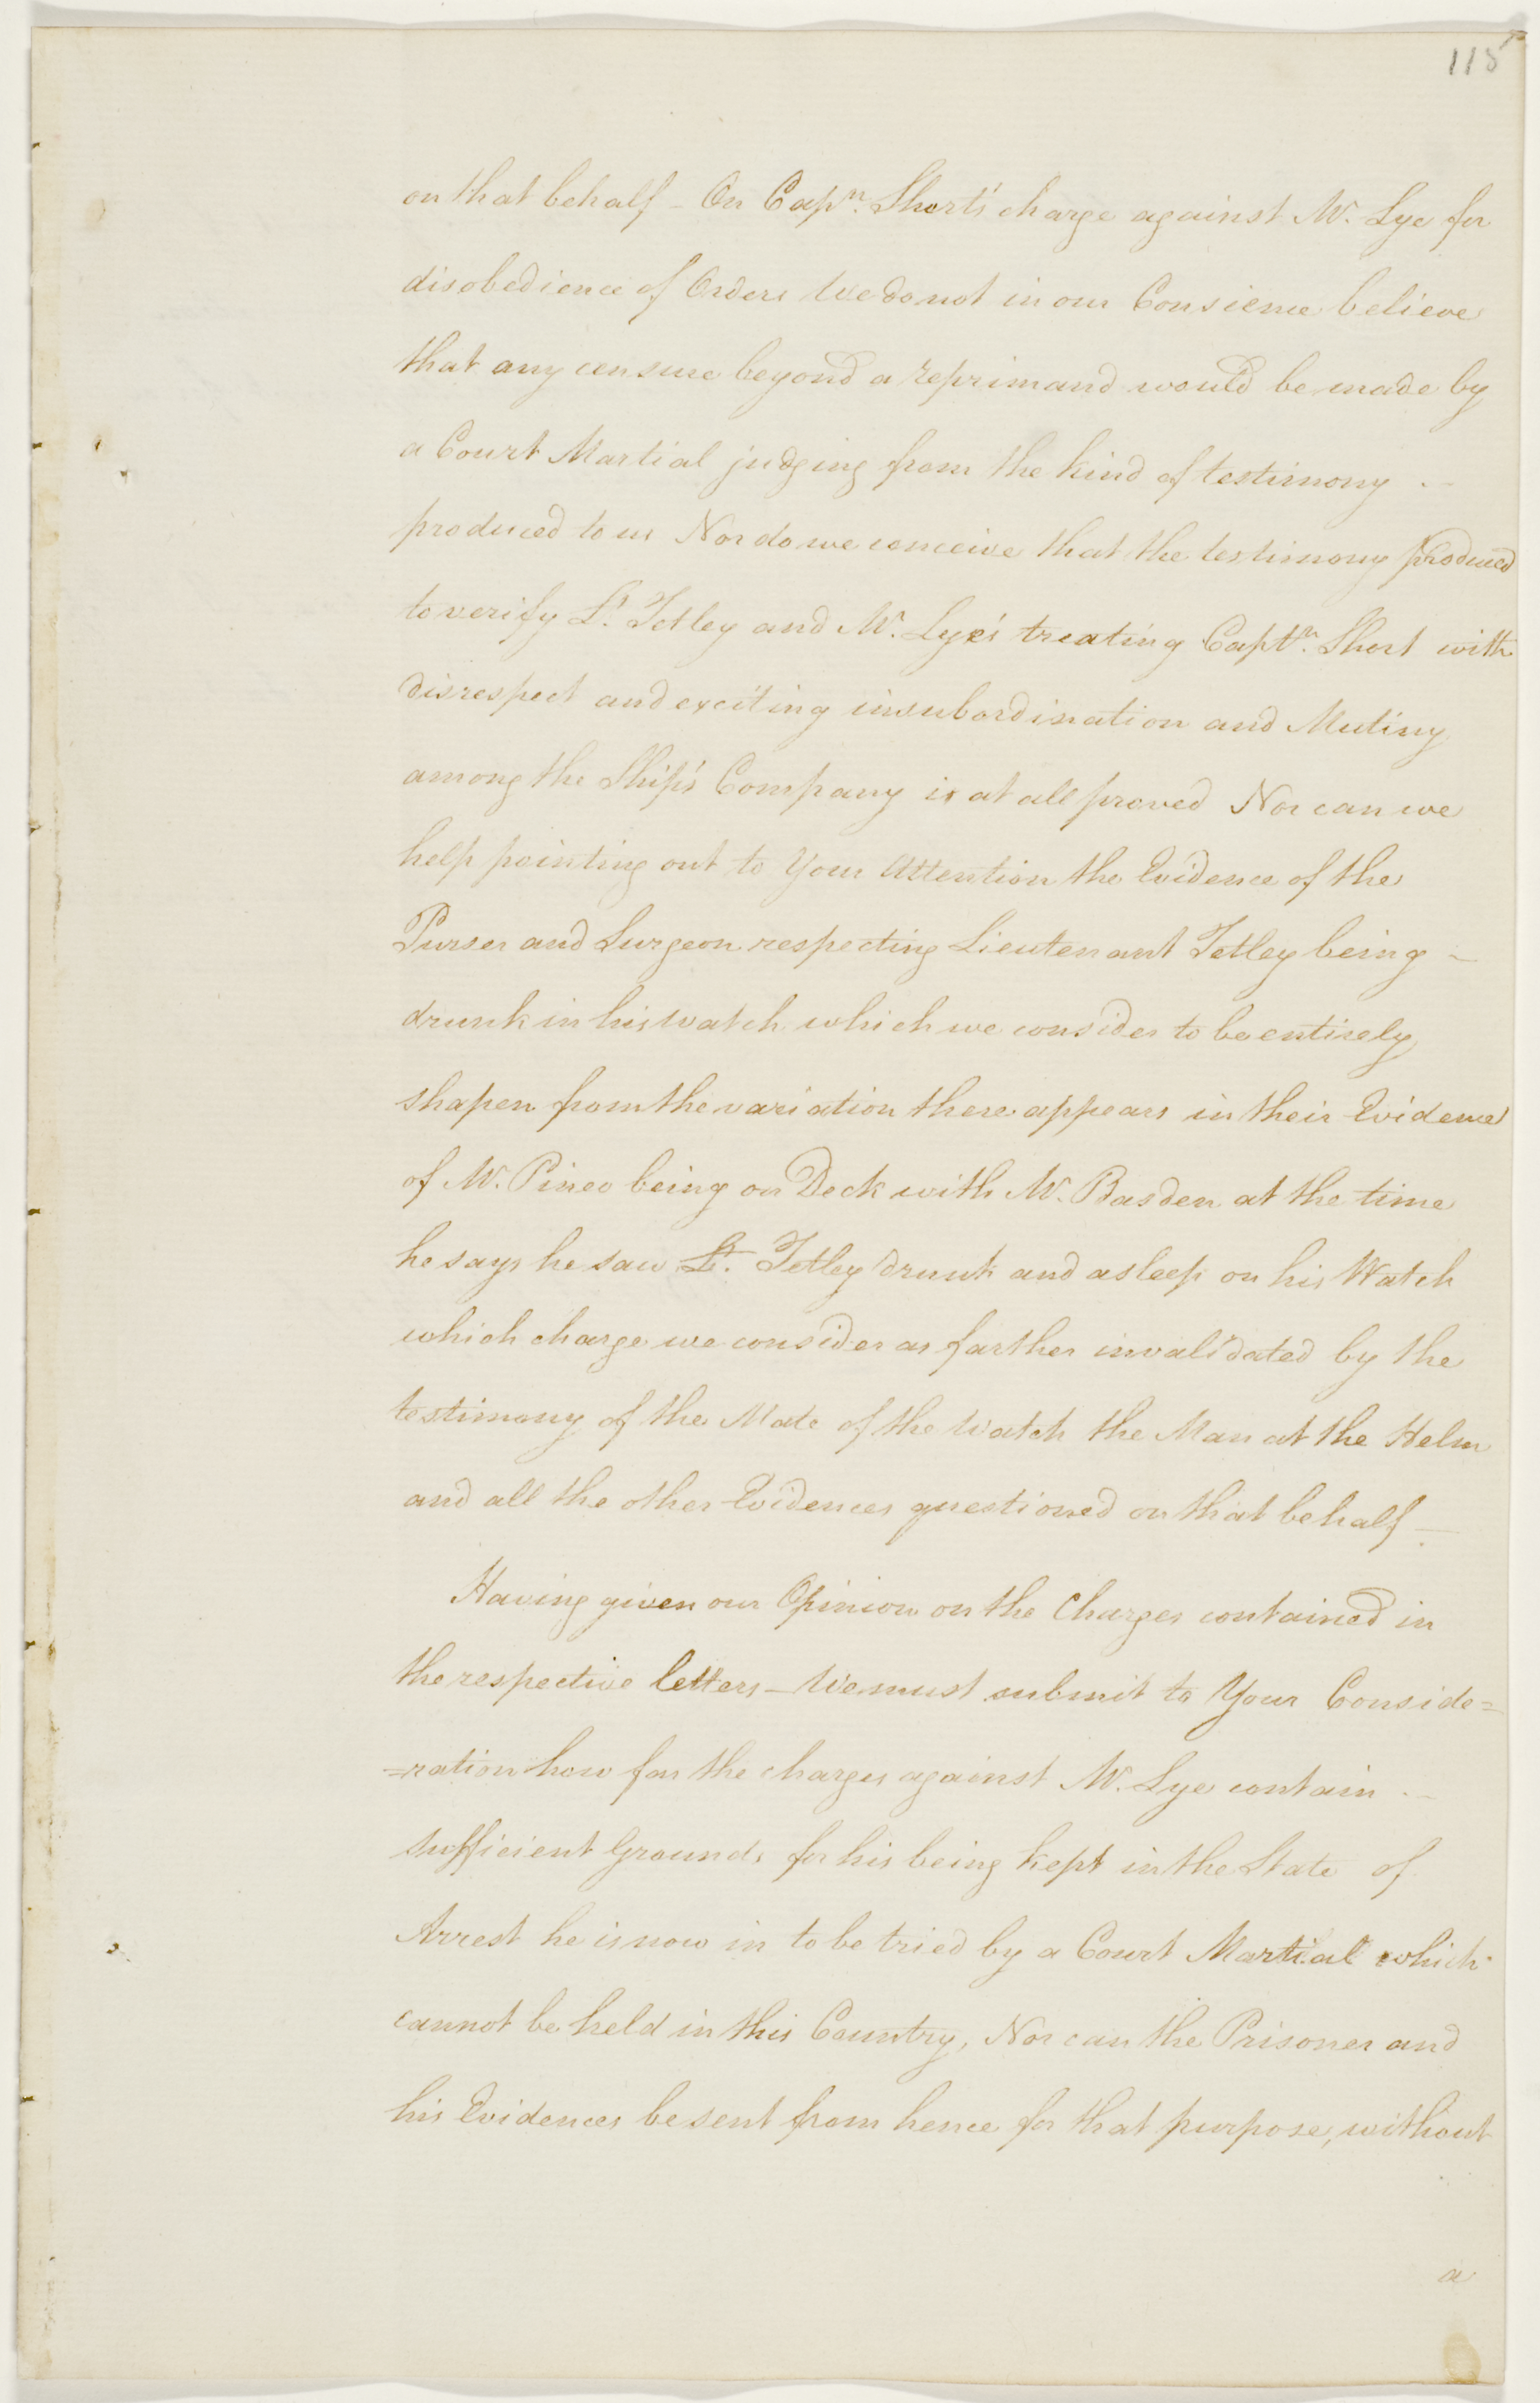 115
on that behalf - On Capn. Short's charge against Mr. Lye for
disobedience of Orders We do not in our Consience believe
that any censure beyond a reprimand would be made by
a Court Martial judging from the kind of testimony -
produced to us Nor do we conceive that the testimony produced
to verify Lt. Tetley and Mr. Lye's treating Captn. Short with
disrespect and exciting insubordination and Mutiny
among the Ship's Company is at all proved Nor can we
help pointing out to Your Attention the Evidence of the
Purser and Surgeon respecting Lieutenant Tetley being -
drunk in his Watch which we consider to be entirely
shapen from the variation there appears in their Evidence
of Mr. Pineo being on Deck with Mr. Basden at the time
he says he saw Lt. Tetley drunk and asleep on his Watch
which charge we consider as farther invalidated by the
testimony of the Mate of the Watch the Man at the Helm
and all the other Evidences questioned on that behalf -
Having given our Opinion on the Charges contained in
the respective letters - We must submit to Your Conside=
=ration how far the charges against Mr. Lye contain -
sufficient Grounds for his being kept in the State of
Arrest he is now in to be tried by a Court Martial which
cannot be held in this Country, Nor can the Prisoner and
his Evidences be sent from hence for that purpose, without
a